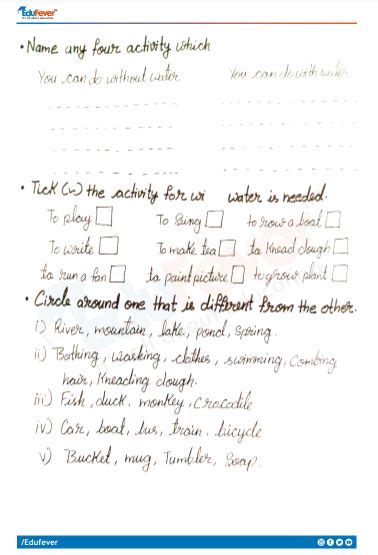 EduFever
• Name any four activity which
You can do without water You can do with water
• Tick (✓) the activity for wi water is needed.
To play To Sing to row a boat
To write To make tea to Knead dough
to run a fan to paint picture to grow plant
• Circle around one that is different from the other.
i) River, mountain, lake, pond, Spring.
ii) Bathing, washing, clothes, swimming, Combing
hair, Kneading dough.
iii) Fish, duck, monkey, Crocodile
iv) Car, boat, bus, train, bicycle
v) Bucket, mug, Tumbler, Soap.
/Edufever